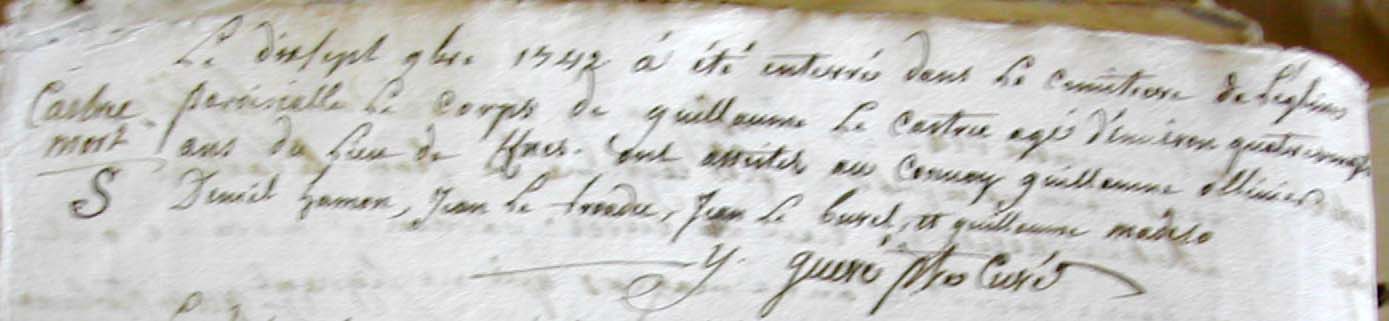 Le dixsept gbre 1742 á été enterré dans Le cemitiere de L'eglise
Castrec parroissialle Le corps de guillaume Le castrec agé d'environ quatrevingt
mort ans du Lieu de ont assistes au convoy guillaume ollivier
S Deniel hamon, Jean Le troadec, Jean Le burel, et guillaume madelo
y. gueré ptre Curé